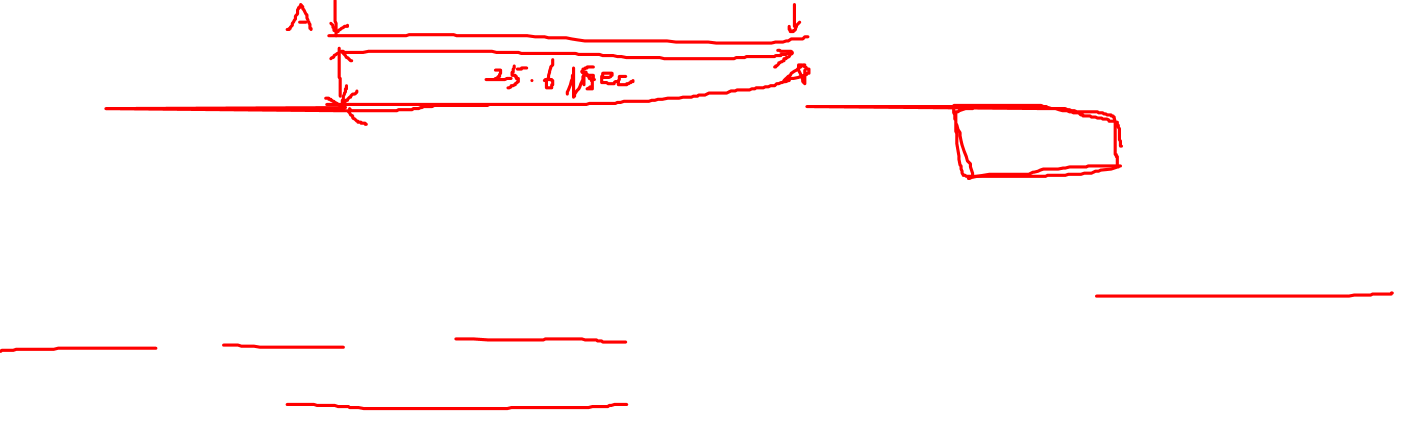 A
25.6 μsec